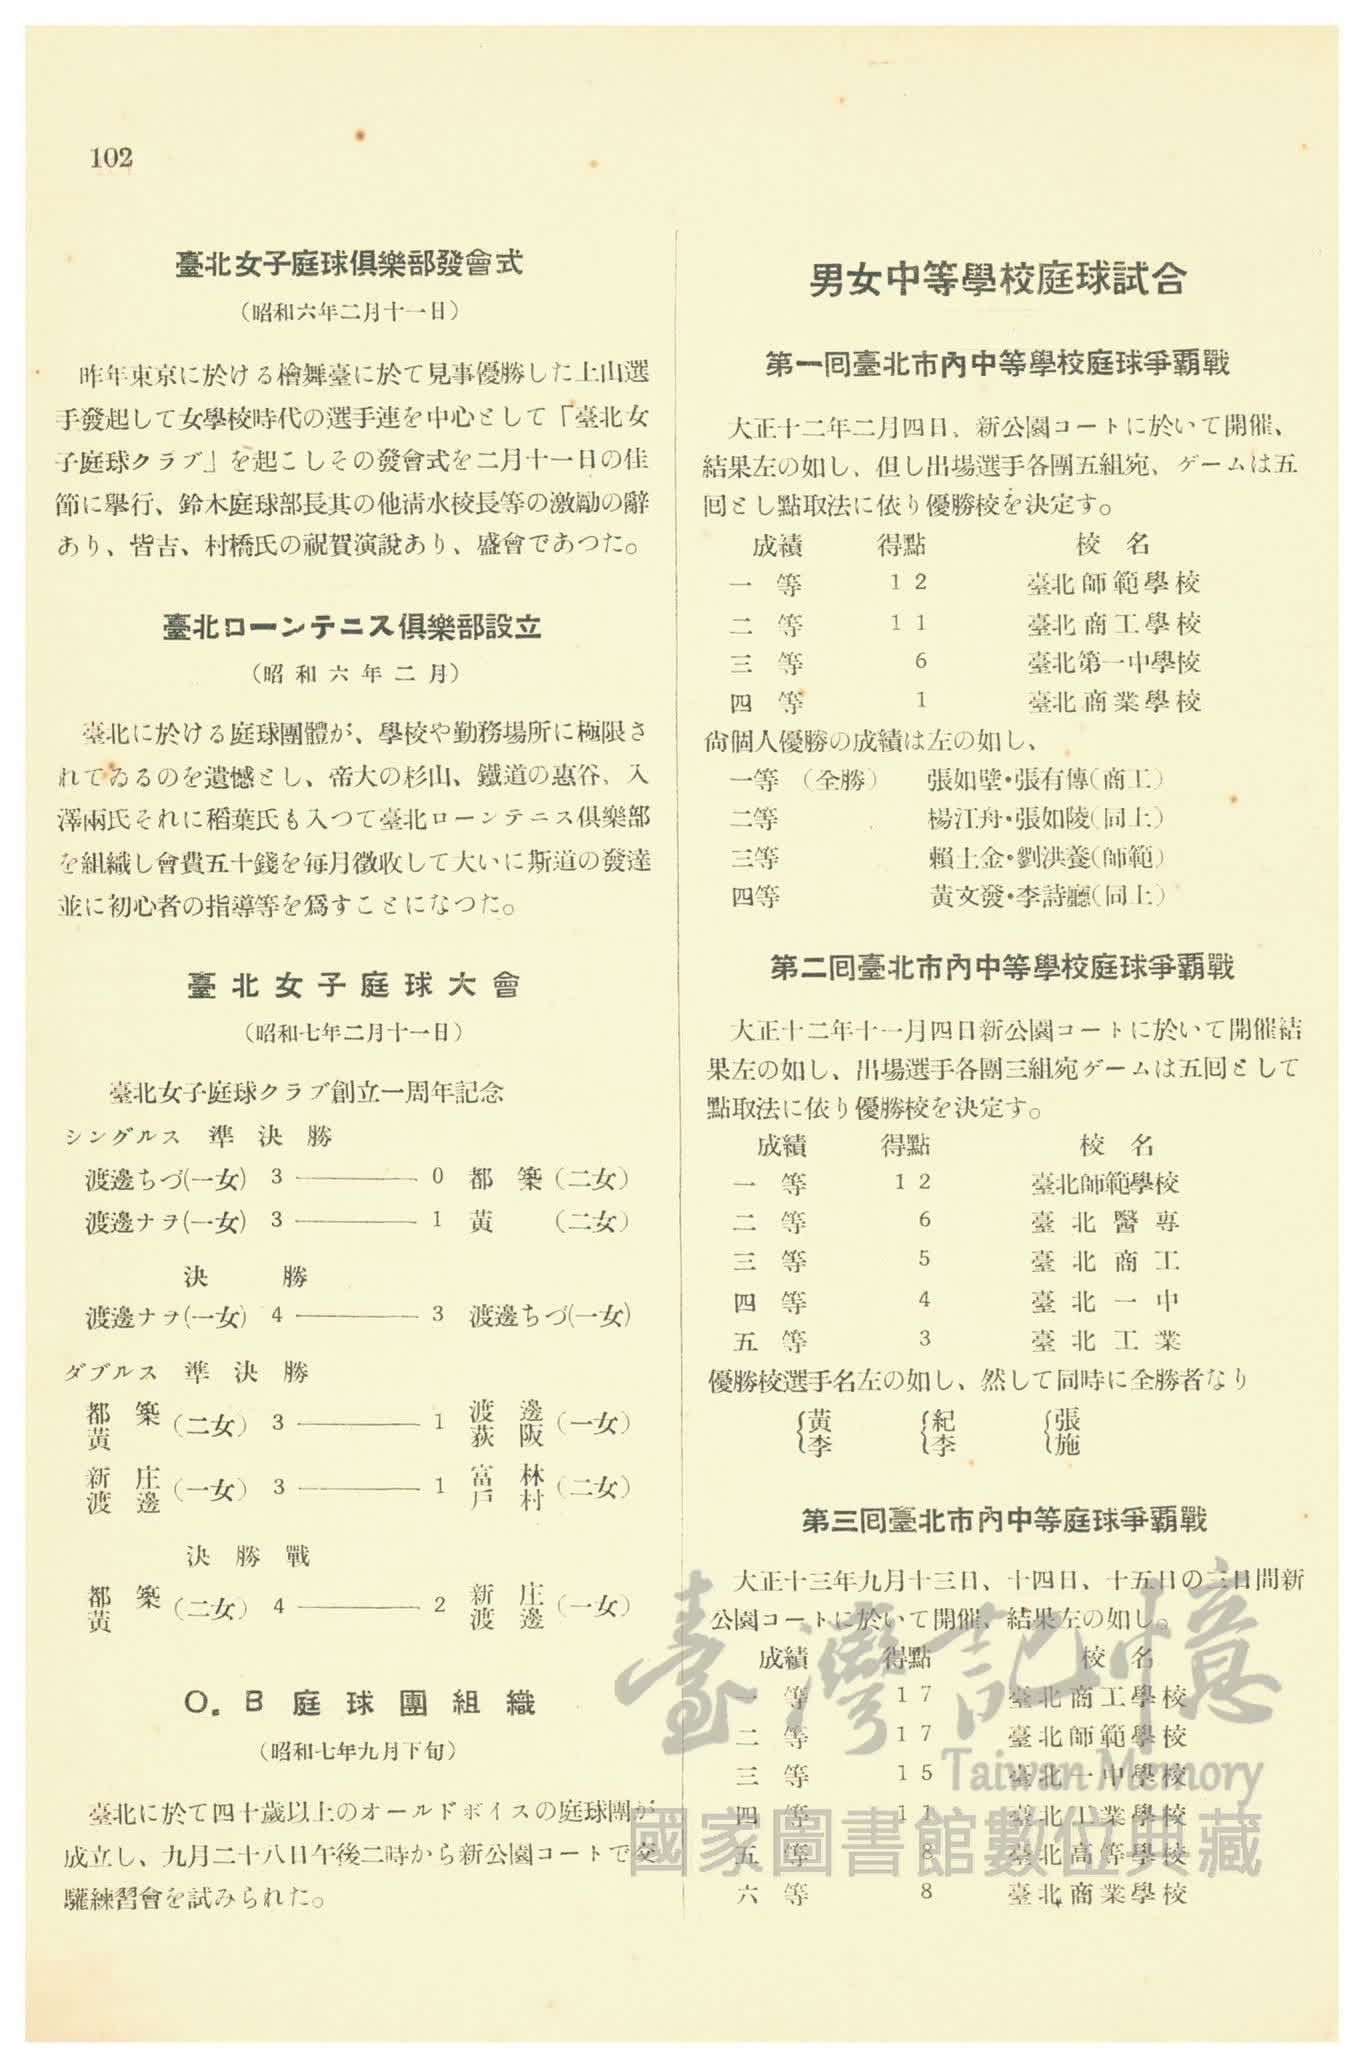 102
臺北女子庭球俱樂部發會式
（昭和六年二月十一日）
昨年東京に於ける檜舞臺に於て見事優勝した上山選
手發起して女學校時代の選手連を中心として「臺北女
子庭球クラブ」を起こしその發會式を二月十一日の佳
節に擧行、鈴木庭球部長其の他淸水校長等の激勵の辭
あり、皆吉、村橋氏の祝賀演說あり、盛會であつた。
臺北ローンテニス俱樂部設立
（昭和六年二月）
臺北に於ける庭球團體が、學校や勤務場所に極限さ
れてゐるのを遺憾とし、帝大の杉山、鐵道の惠谷、入
澤兩氏それに稻葉氏も入つて臺北ローンテニス俱樂部
を組織し會費五十錢を每月徵收して大いに斯道の發達
並に初心者の指導等を爲すことになつた。
臺北女子庭球大會
（昭和七年二月十一日）
臺北女子庭球クラブ創立一周年記念
シングルス 準決勝
渡邊ちづ(一女) 3 ——— 0 都築（二女）
渡邊ナヲ(一女) 3 ——— 1 黃（二女）
決勝
渡邊ナヲ(一女) 4 ——— 3 渡邊ちづ(一女)
ダブルス 準決勝
都築 黃（二女） 3 ——— 1 渡邊 荻阪（一女）
新庄 渡邊（一女） 3 ——— 1 富林 戶村（二女）
決勝戰
都築 黃（二女） 4 ——— 2 新庄 渡邊（一女）
O．B庭球團組織
（昭和七年九月下旬）
臺北に於て四十歲以上のオールドボイスの庭球團が
成立し、九月二十八日午後二時から新公園コートで交
驩練習會を試みられた。
男女中等學校庭球試合
第一囘臺北市內中等學校庭球爭覇戰
大正十二年二月四日、新公園コートに於いて開催、
結果左の如し、但し出場選手各團五組宛、ゲームは五
囘とし點取法に依り優勝校を決定す。
成績 得點 校名
一等 12 臺北師範學校
二等 11 臺北商工學校
三等 6 臺北第一中學校
四等 1 臺北商業學校
尙個人優勝の成績は左の如し、
一等（全勝） 張如壁・張有傳(商工)
二等 楊江舟・張如陵(同上)
三等 賴土金・劉洪養(師範)
四等 黃文發・李詩廳(同上)
第二囘臺北市內中等學校庭球爭覇戰
大正十二年十一月四日新公園コートに於いて開催結
果左の如し、出場選手各團三組宛ゲームは五囘として
點取法に依り優勝校を決定す。
成績 得點 校名
一等 12 臺北師範學校
二等 6 臺北醫專
三等 5 臺北商工
四等 4 臺北一中
五等 3 臺北工業
優勝校選手名左の如し、然して同時に全勝者なり
{黃 {紀 {張
{李 {李 {施
第三囘臺北市內中等庭球爭覇戰
大正十三年九月十三日、十四日、十五日の三日間新
公園コートに於いて開催、結果左の如し。
成績 得點 校名
一等 17 臺北商工學校
二等 17 臺北師範學校
三等 15 臺北一中學校
四等 11 臺北工業學校
五等 8 臺北高等學校
六等 8 臺北商業學校
臺灣記憶
Taiwan Memory
國家圖書館數位典藏